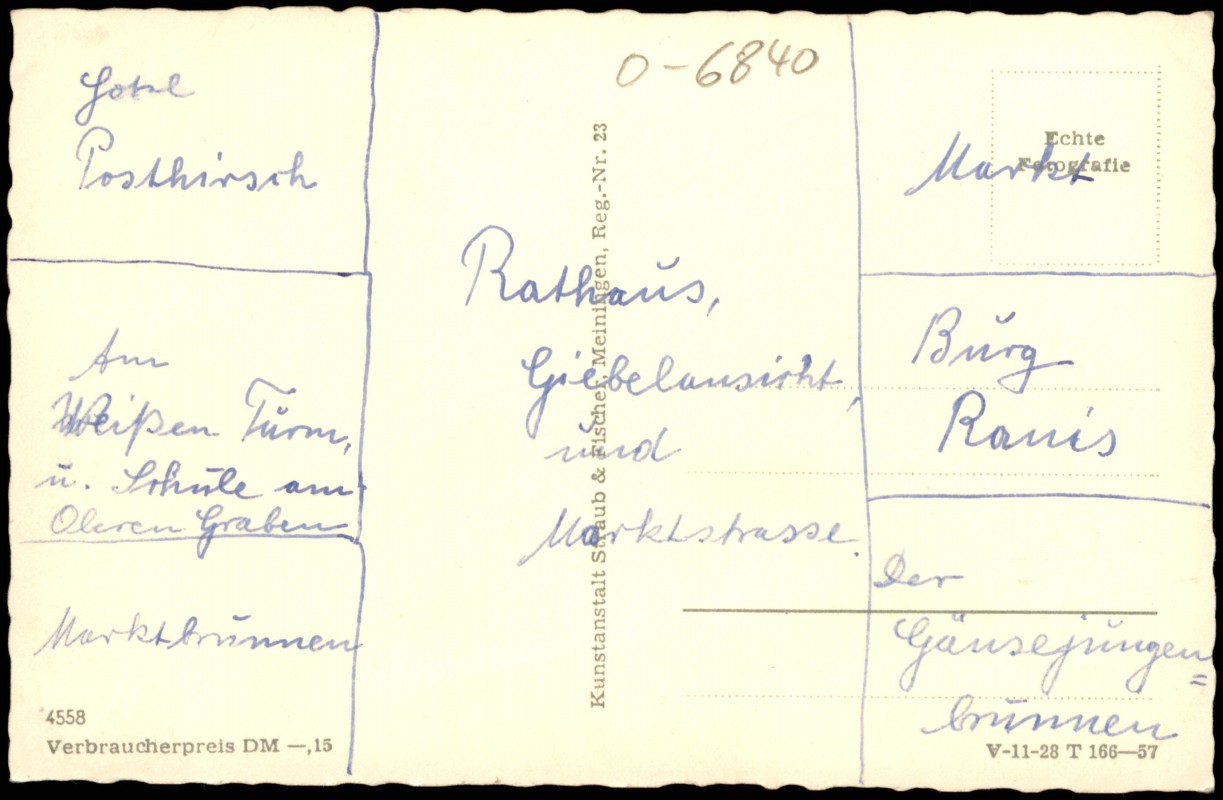 O-6840
Hotel
Posthirsch
Am
Weißen Turm,
u. Schule am
Oberen Graben
Marktbrunnen
4558
Verbraucherpreis DM —,15
Rathaus,
Giebelansicht,
und
Marktstrasse.
Kunstanstalt Straub & Fischer, Meiningen, Reg.-Nr. 23
Echte
Fotografie
Markt
Burg
Ranis
Der
Gänsejungen=
brunnen
V-11-28 T 166—57